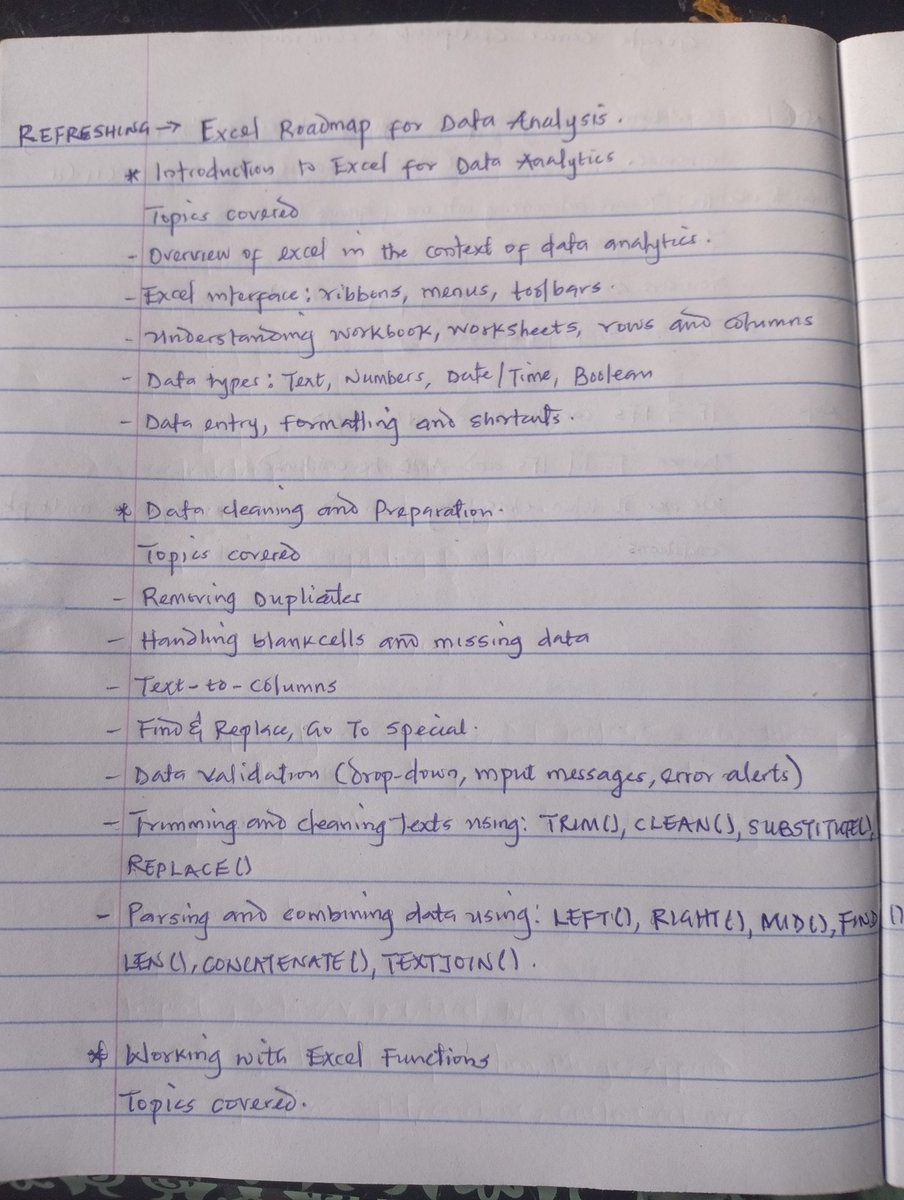 REFRESHING → Excel Roadmap for Data Analysis.
* Introduction to Excel for Data Analytics.
Topics covered
- Overview of excel in the context of data analytics.
- Excel interface: ribbons, menus, toolbars.
- Understanding workbook, worksheets, rows and columns
- Data types: Text, Numbers, Date/Time, Boolean
- Data entry, formatting and shortcuts.
* Data cleaning and Preparation.
Topics covered
- Removing Duplicates
- Handling blank cells and missing data
- Text-to-columns
- Find & Replace, Go To Special.
- Data validation (drop-down, input messages, error alerts)
- Trimming and cleaning Texts using: TRIM(), CLEAN(), SUBSTITUTE(),
REPLACE()
- Parsing and combining data using: LEFT(), RIGHT(), MID(), FIND()
LEN(), CONCATENATE(), TEXTJOIN().
* Working with Excel Functions
Topics covered.